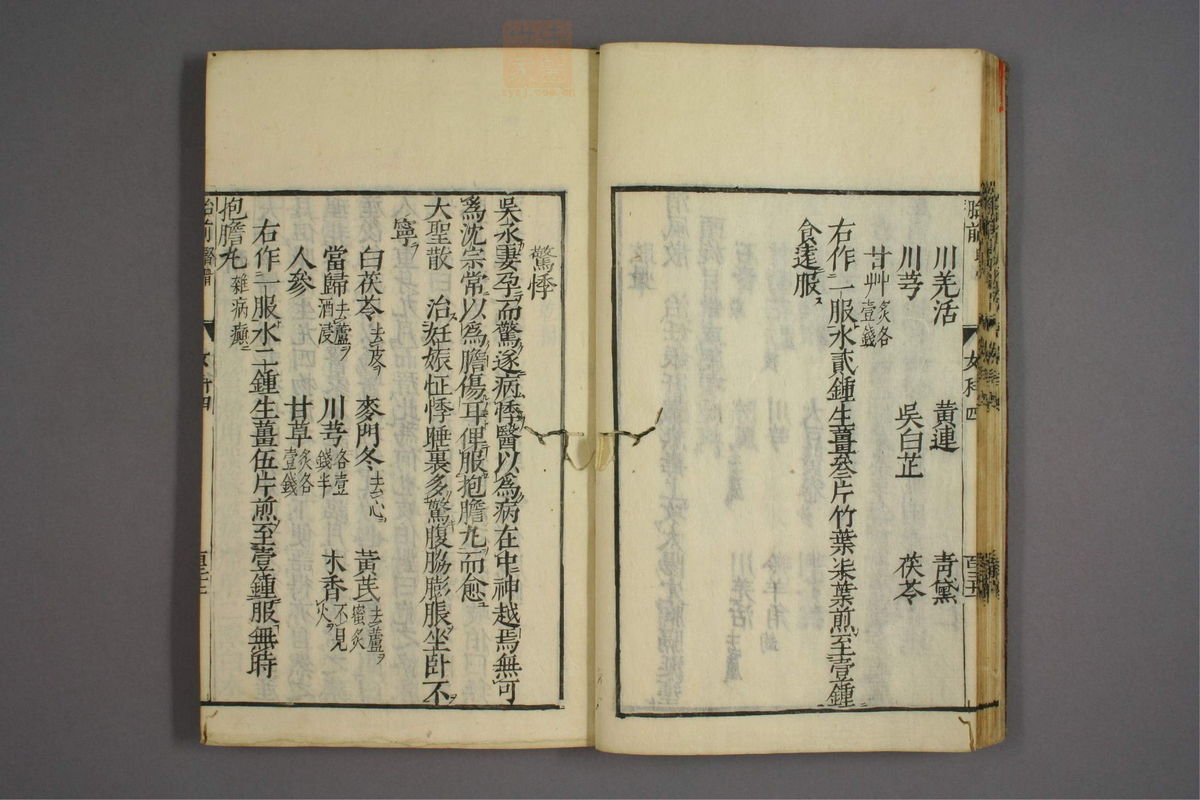 川羌活 黃連 青黛
川芎 吳白芷 茯苓
甘艸炙各壹錢
右作一服水貳鍾生薑叄片竹葉柒葉煎至壹鍾
食遠服
驚悸
吳永妻孕而驚遂病悸醫以為病在中神越焉無可
為沈宗常以為膽傷耳俾服抱膽丸而愈
大聖散 治妊娠怔悸睡裏多驚腹脇膨脹坐卧不
寧
白茯苓去皮 麥門冬去心 黃芪去蘆蜜炙
當歸去蘆酒浸 川芎各壹錢半 木香不見火
人參 甘草炙各壹錢
右作一服水二鍾生薑伍片煎至壹鍾服無時
抱膽丸雜病癲
胎前
女科四